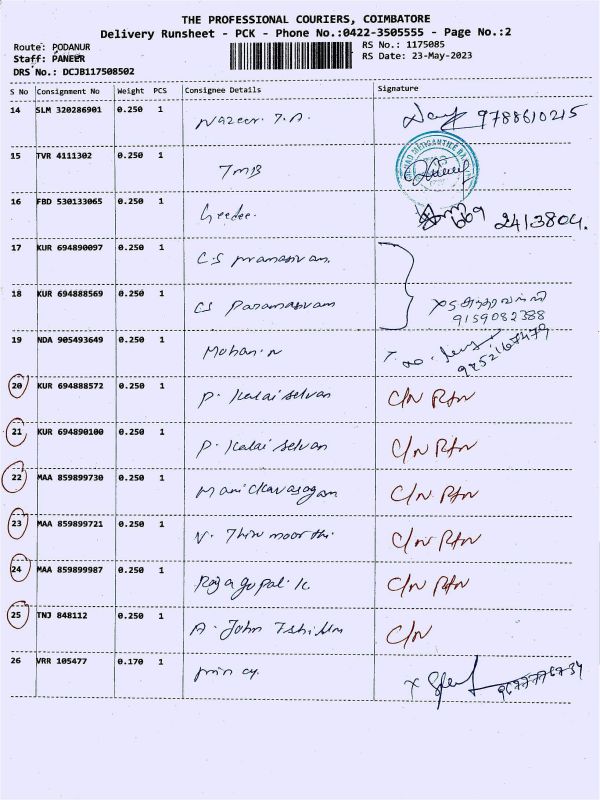 THE PROFESSIONAL COURIERS, COIMBATORE
Delivery Runsheet - PCK - Phone No.:0422-3505555 - Page No.:2
Route: PODANUR
RS No.: 1175085
Staff: PANEER
RS Date: 23-May-2023
DRS No.: DCJB117508502
S No Consignment No Weight PCS Consignee Details Signature
14 SLM 320286901 0.250 1 Nazeer. T.A. 9788610215
15 TVR 4111302 0.250 1 TMB
16 FBD 530133065 0.250 1 Geedee. 2413804.
17 KUR 694890097 0.250 1 C.S
18 KUR 694888569 0.250 1 CS Paramasivam
9159082388
19 NDA 905493649 0.250 1 Mohan.N
20 KUR 694888572 0.250 1 P. Kalai selvan C/N RTN
21 KUR 694890100 0.250 1 P. Kalai selvan C/N RTN
22 MAA 859899730 0.250 1 Manickavasagam C/N RTN
23 MAA 859899721 0.250 1 N. Thirumoorthi C/N RTN
24 MAA 859899987 0.250 1 Rajagopal.K C/N RTN
25 TNJ 848112 0.250 1 A. John C/N
26 VRR 105477 0.170 1